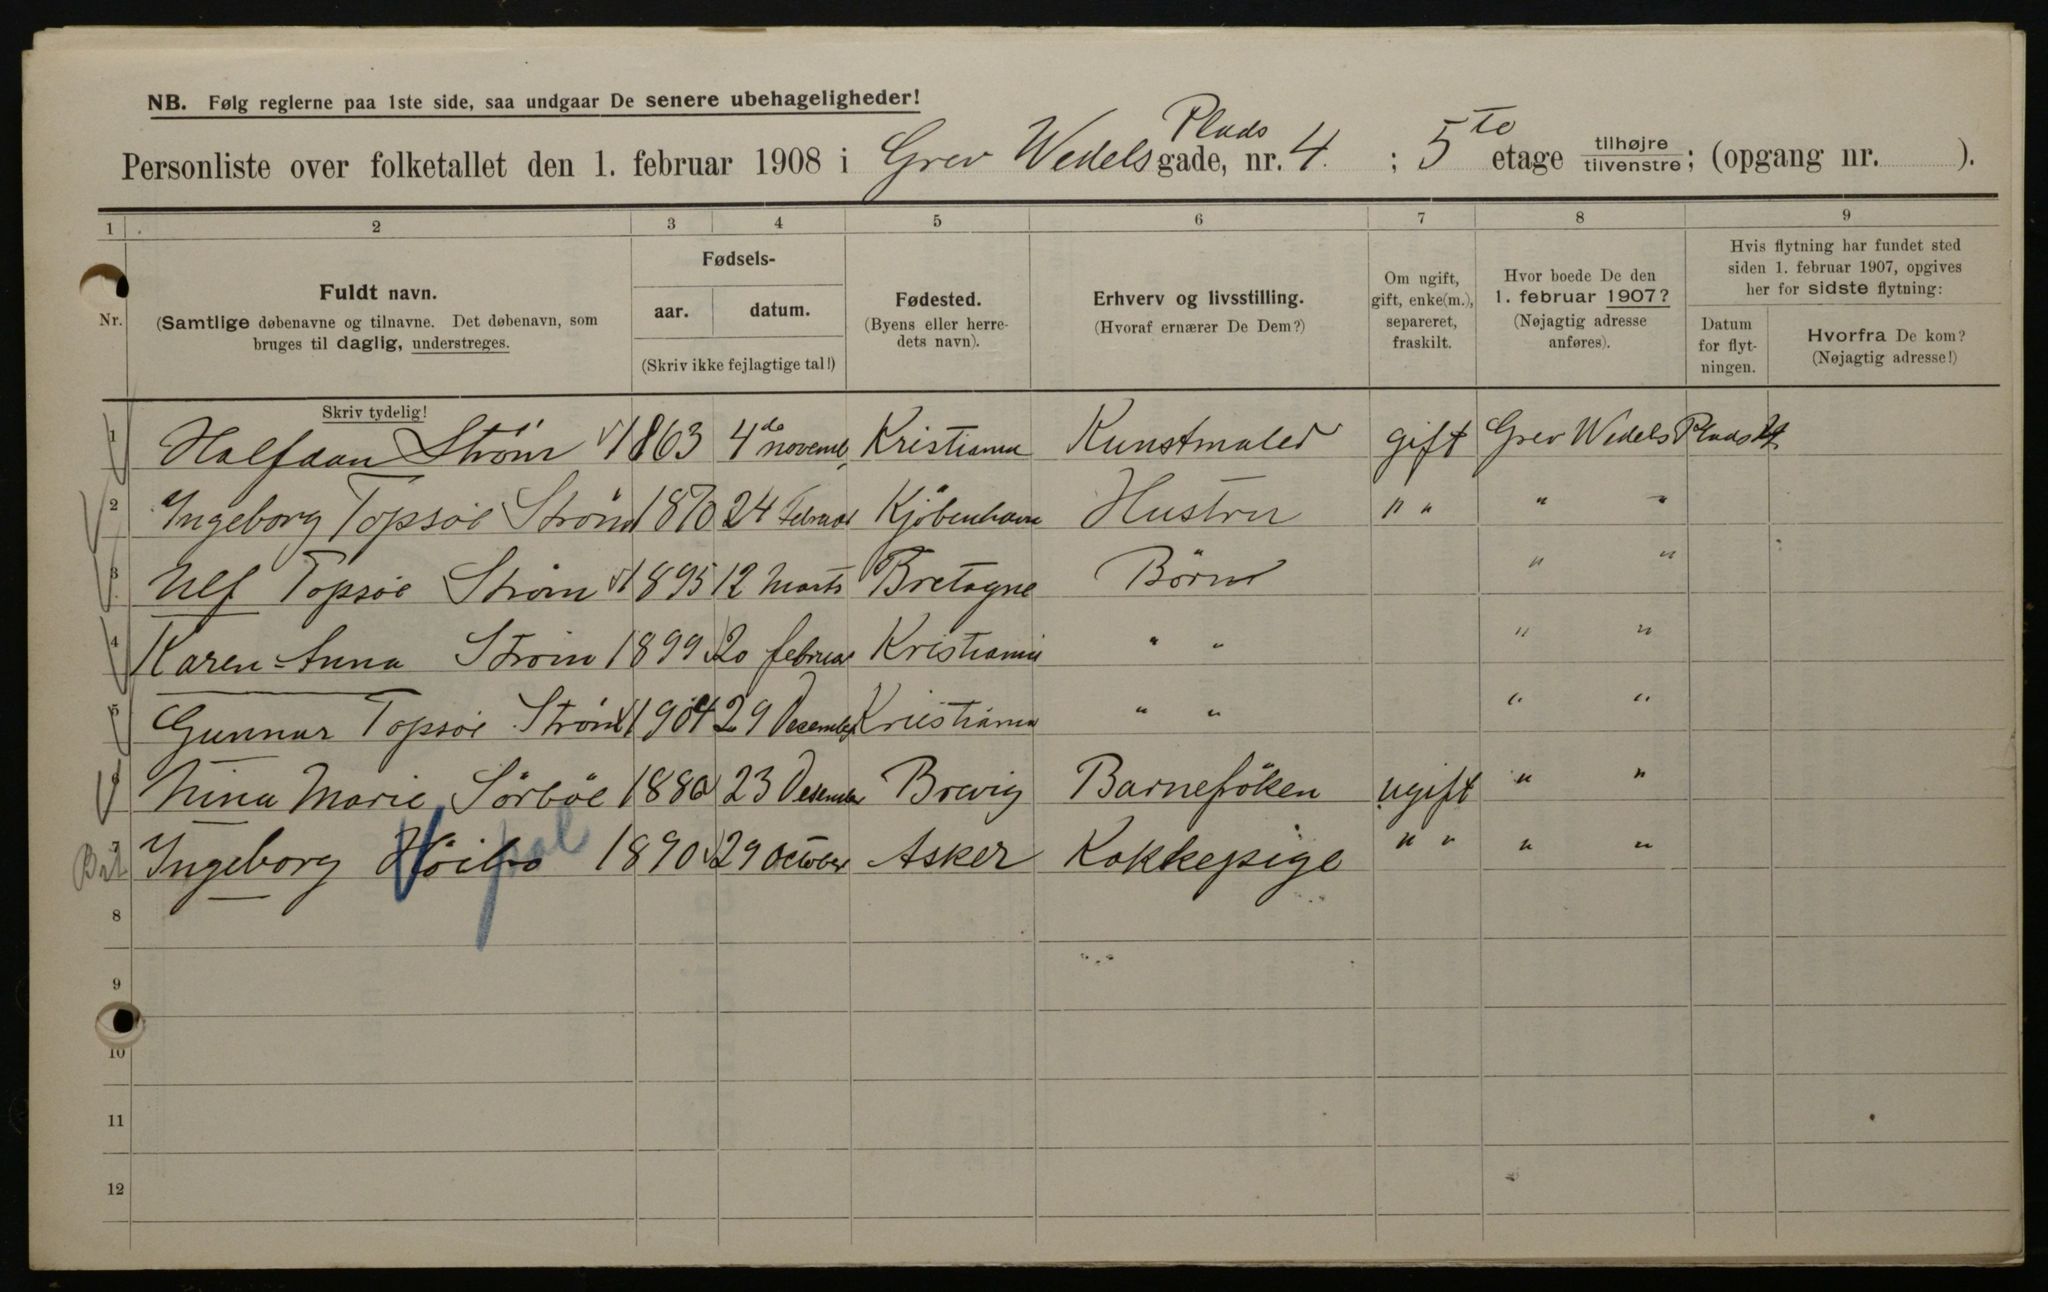 NB. Følg reglerne paa 1ste side, saa undgaar De senere ubehageligheder!
Personliste over folketallet den 1. februar 1908 i Grev Wedels Plads gade, nr. 4. ; 5te etage tilhøjre tilvenstre; (opgang nr. ).
1 2 3 4 5 6 7 8 9
Nr.
Fuldt navn.
(Samtlige døbenavne og tilnavne. Det døbenavn, som
bruges til daglig, understreges.
Skriv tydelig!
Fødsels-
aar. datum.
(Skriv ikke fejlagtige tal!)
Fødested.
(Byens eller herre-
dets navn).
Erhverv og livsstilling.
(Hvoraf ernærer De Dem?)
Om ugift,
gift, enke(m.),
separeret,
fraskilt.
Hvor boede De den
1. februar 1907?
(Nøjagtig adresse
anføres).
Hvis flytning har fundet sted
siden 1. februar 1907, opgives
her for sidste flytning:
Datum
for flyt-
ningen.
Hvorfra De kom?
(Nøjagtig adresse!)
1 Halfdan Strøm 1863 4de novemb. Kristiania Kunstmaler gift Grev Wedels Plads 4
2 Ingeborg Topsøe Strøm 1870 24 Februar Kjöbenhavn Hustru " " " "
3 Ulf Topsøe Strøm 1895 12 Marts Bretagne Börn " "
4 Karen-Anna Strøm 1899 20 februar Kristiania " " " "
5 Gunnar Topsøe Strøm 1904 29 Desember Kristiania " " " "
6 Nina Marie Sörböe 1880 23 Desember Brevig Barnefröken ugift " "
7 Ingeborg Höibo 1890 29 October Asker Kokkepige " " " "
8
9
10
11
12